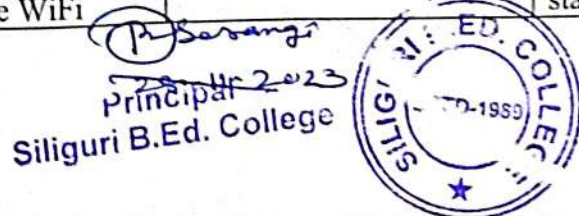 e WiFi
sta
P. Sarangi
2023
Principal
Siliguri B.Ed. College
SILIGURI B.ED. COLLEGE
-1959